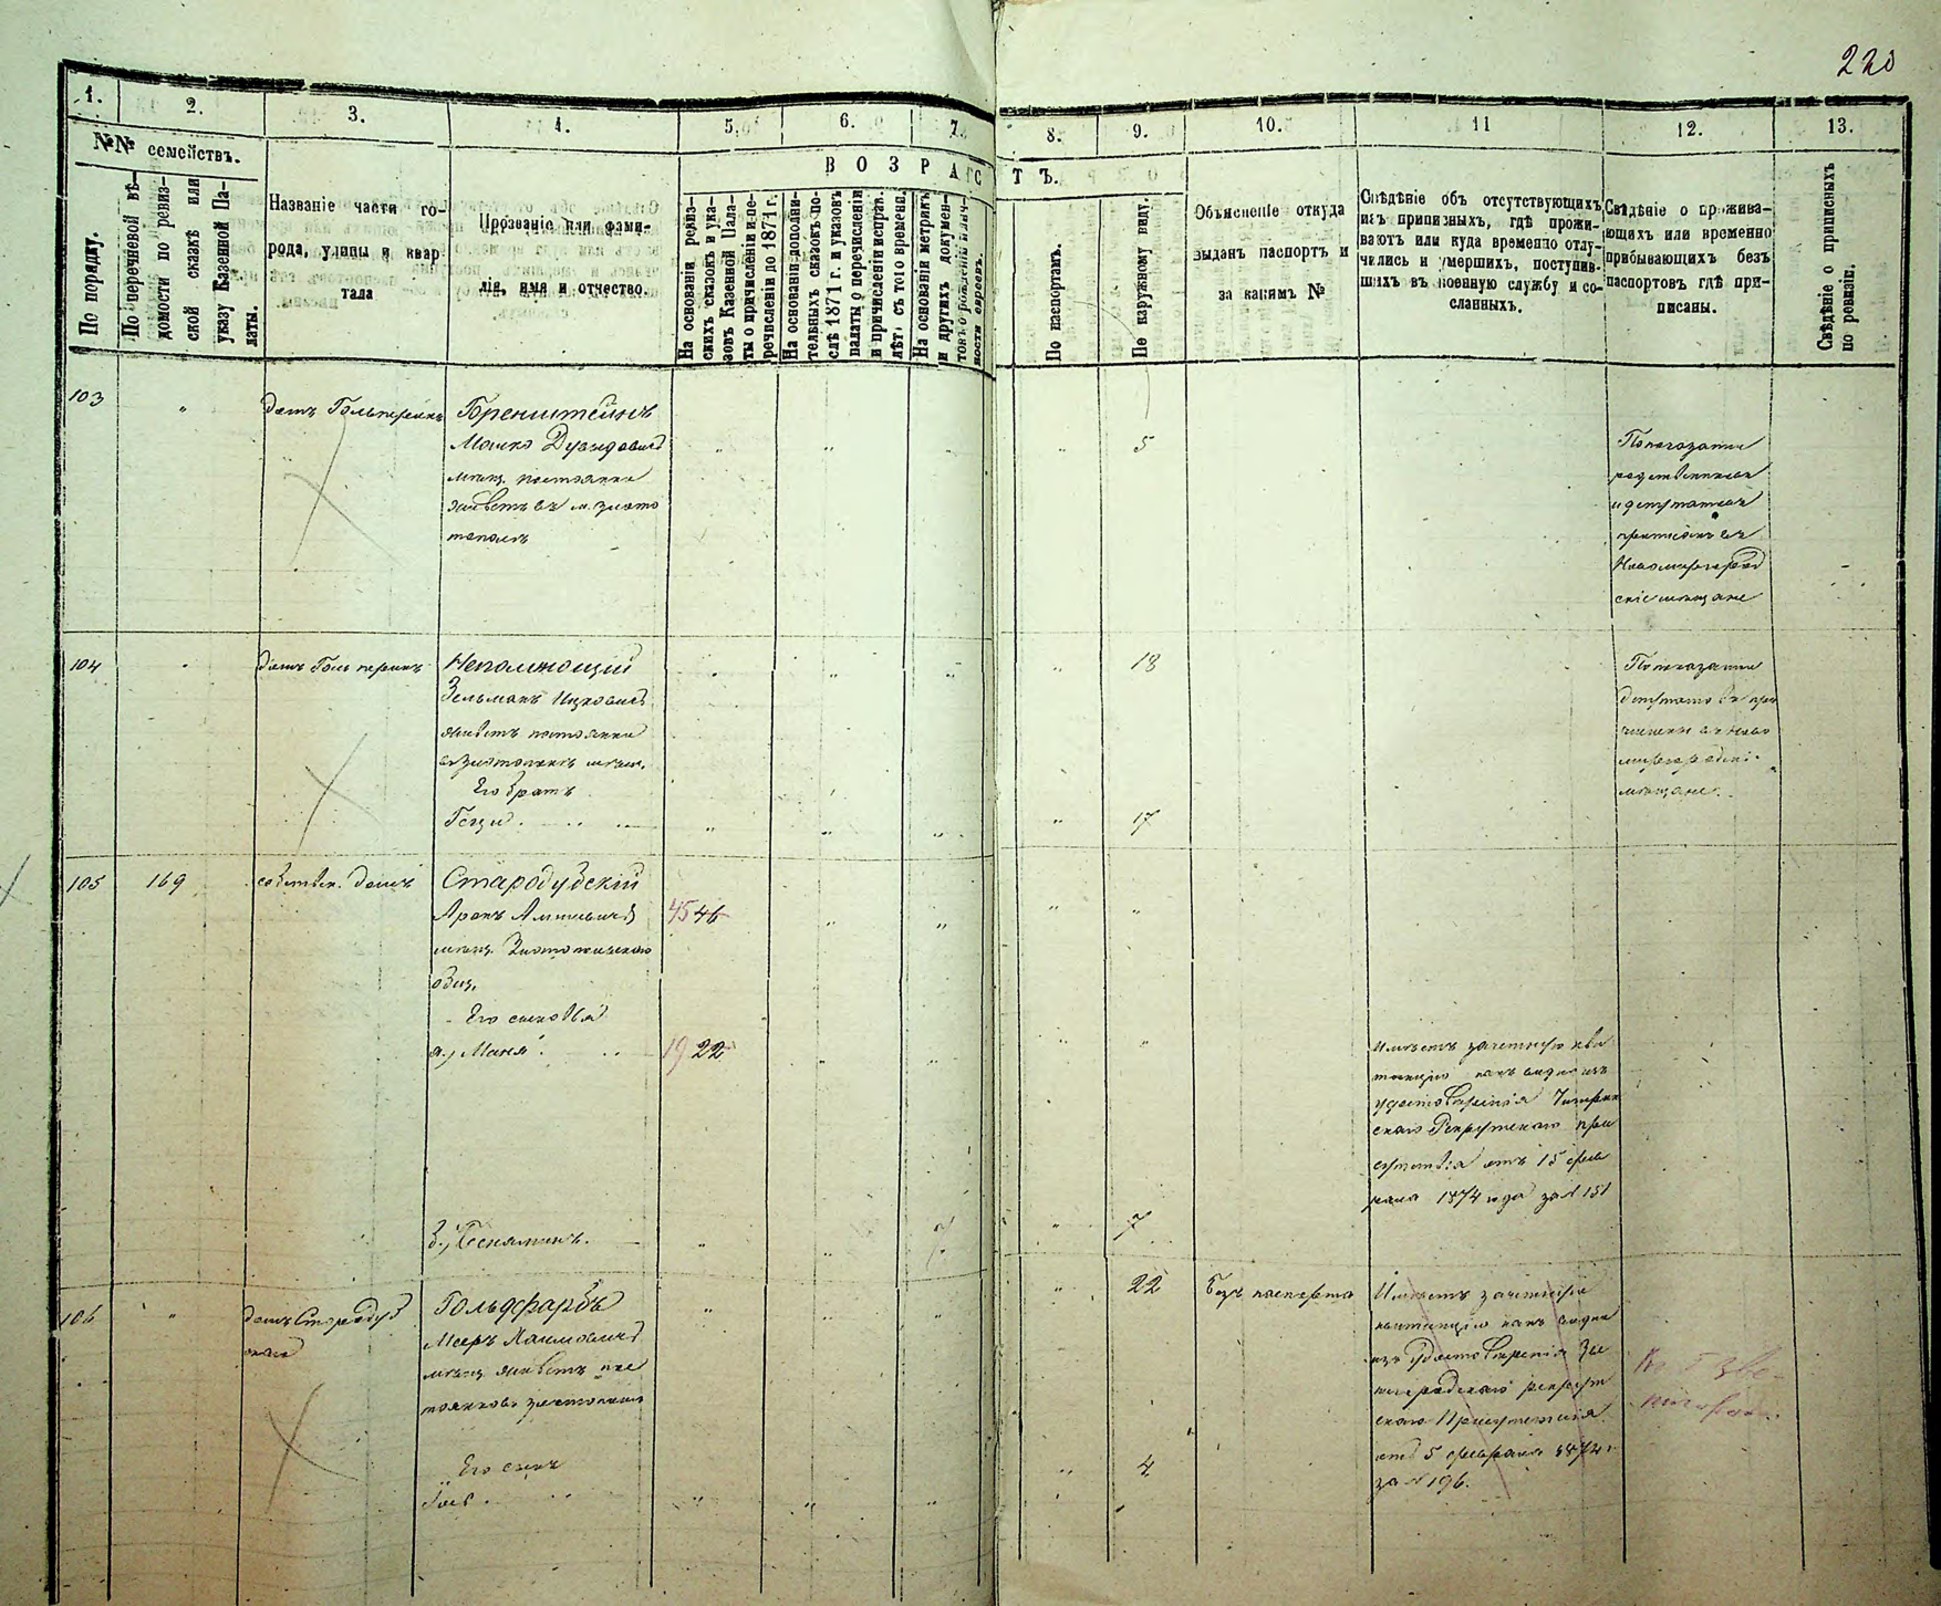 220
1. 2. 3. 4. 5. 6. 7. 8. 9. 10. 11 12. 13.
№№ семействъ.
ВОЗРАСТЪ.
По порядку.
По перечневой вѣ-
домости по ревиз-
ской сказкѣ или
указу Казенной Па-
латы.
Названіе части го-
рода, улицы и квар
тала
Прозваніе или фами-
лія, имя и отчество.
На основаніи ревиз-
скихъ сказокъ и ука-
зовъ Казенной Пала-
ты о причисленіи и пе-
речисленіи до 1871 г.
На основаніи дополни-
тельныхъ сказокъ по-
слѣ 1871 г. и указовъ
палаты о перечисленіи
и причисленіи исправ.
лѣтъ съ того времени.
На основаніи метрикъ
и другихъ докумен-
товъ о рожденіи
ности евреевъ.
По паспортамъ.
По наружному виду.
Объясненіе откуда
выданъ паспортъ и
за какимъ №
Свѣдѣніе объ отсутствующихъ
изъ приписныхъ, гдѣ прожи-
ваютъ или куда временно отлу-
чились и умершихъ, поступив-
шихъ въ военную службу и со-
сланныхъ.
Свѣдѣніе о прожива-
ющихъ или временно
прибывающихъ безъ
паспортовъ гдѣ при-
писаны.
Свѣдѣніе о приписныхъ
по ревизіи.
103 " домъ Гольперинъ Боренштейнъ
Мошко Дувидовичъ " " " " 5
мѣщ. постоянно
живетъ въ м. Злато
полѣ
По показанію
родственниковъ
и депутатовъ
приписанъ въ
Новомиргород
скіе мѣщане
104 домъ Гольперинъ Непомнющій " " " " 18
Зельманъ Ицковичъ
живетъ постоянно
въ Златополѣ мѣщ.
Его братъ
Гершъ " " " " 17
По показанію
депутатовъ при
численъ въ Ново
миргородскі
мѣщане.
105 169 собствен. домъ Стародубскій
Аронъ 45 46 " " " "
мѣщ. Златопольскаго
общ.
Его сыновья
а., Маня 19 22 " " " "
Имѣетъ зачетную кви
танцію какъ видно изъ
удостовѣренія Чигирин
скаго Рекрутскаго при
сутствія отъ 15 фев
раля 1874 года за № 151
б., Беняминъ. " " 7 " 7
106 " домъ Стародуб
скаго
Гольдфарбъ " " " " 22 Безъ паспорта
Мееръ Хаимовичъ
мѣщ. живетъ пос
тоянно въ Златополѣ
Имѣетъ зачетную
квитанцію какъ видно
изъ удостовѣренія Зве
нигородскаго рекрут
скаго Присутствія
отъ 5 февраля 1874 г.
за № 196.
Его сынъ
" " " " 4